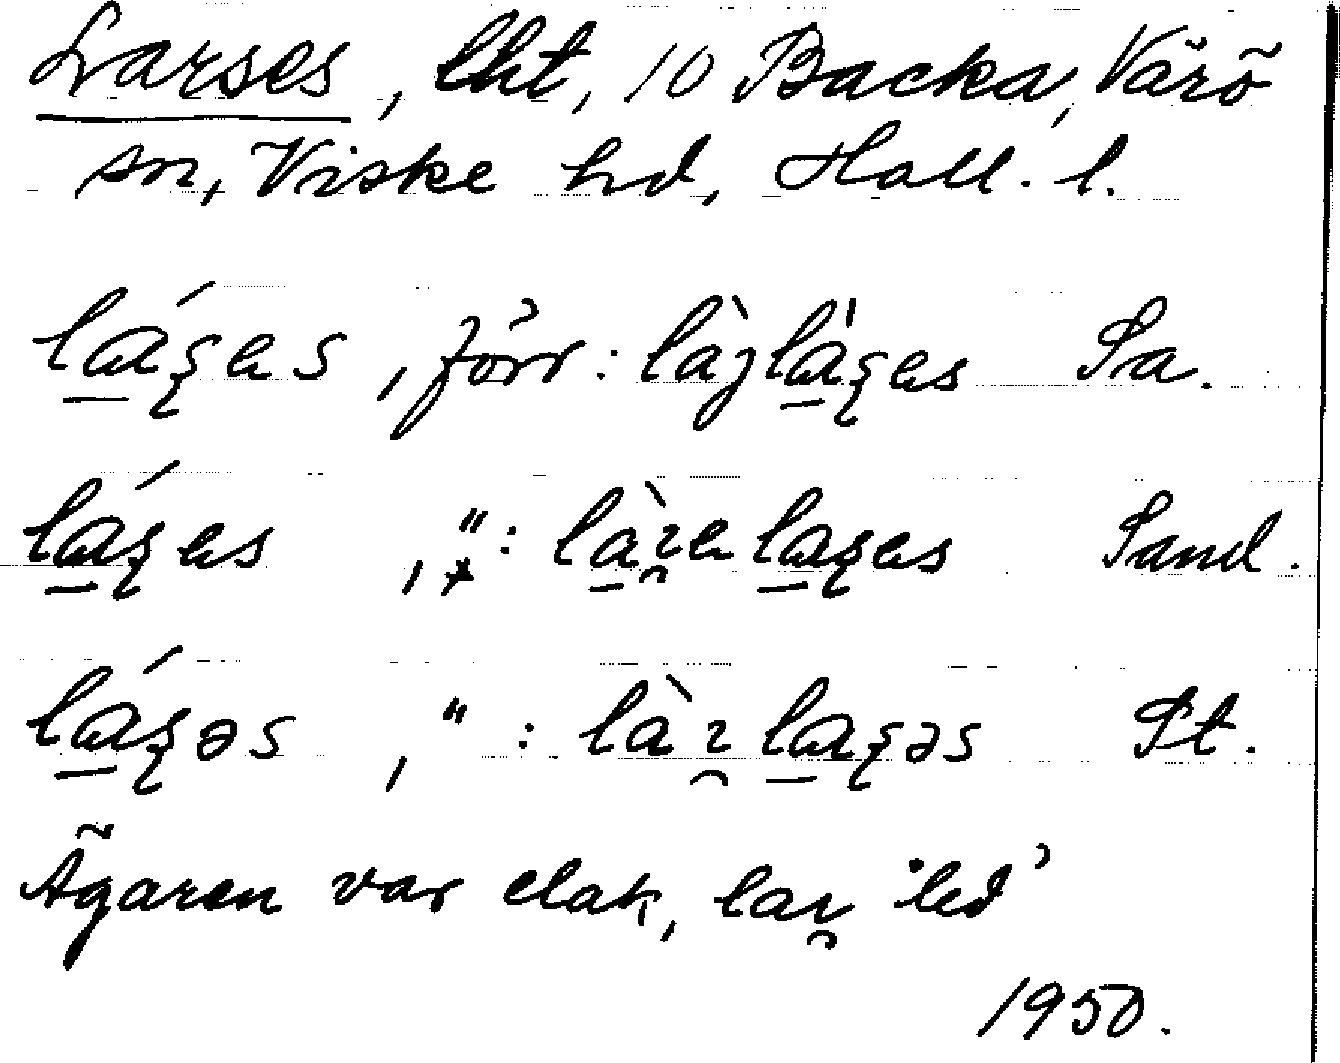 Larses, lht, 10 Backa, Värö
sn, Viske hd, Hall. l.
lá̠ʂes, förr: làȷlà̠ʂes Sa.
lá̠ʂes, ": là̠ɿ̯ela̠ʂes Sand.
lá̠ʂəs, ": làɿ̯la̠ʂəs St.
Ägaren var elak, laɿ̯ 'led'
1950.